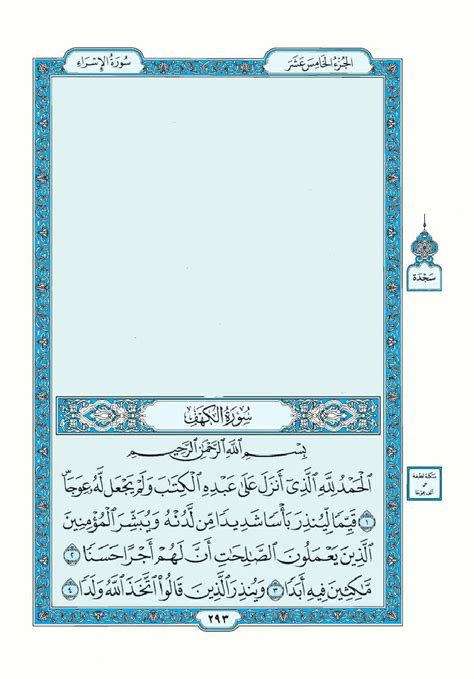 الجزء الخامس عشر
سورة الإسراء
سجدة
سورة الكهف
بسم الله الرحمن الرحيم
ٱلۡحَمۡدُ لِلَّهِ ٱلَّذِيٓ أَنزَلَ عَلَىٰ عَبۡدِهِ ٱلۡكِتَٰبَ وَلَمۡ يَجۡعَل لَّهُۥ عِوَجَاۜ
١ قَيِّمٗا لِّيُنذِرَ بَأۡسٗا شَدِيدٗا مِّن لَّدُنۡهُ وَيُبَشِّرَ ٱلۡمُؤۡمِنِينَ
ٱلَّذِينَ يَعۡمَلُونَ ٱلصَّٰلِحَٰتِ أَنَّ لَهُمۡ أَجۡرًا حَسَنٗا ٢
مَّٰكِثِينَ فِيهِ أَبَدٗا ٣ وَيُنذِرَ ٱلَّذِينَ قَالُواْ ٱتَّخَذَ ٱللَّهُ وَلَدٗا ٤
سكتة لطيفة
على
ألف عوجا
٢٩٣